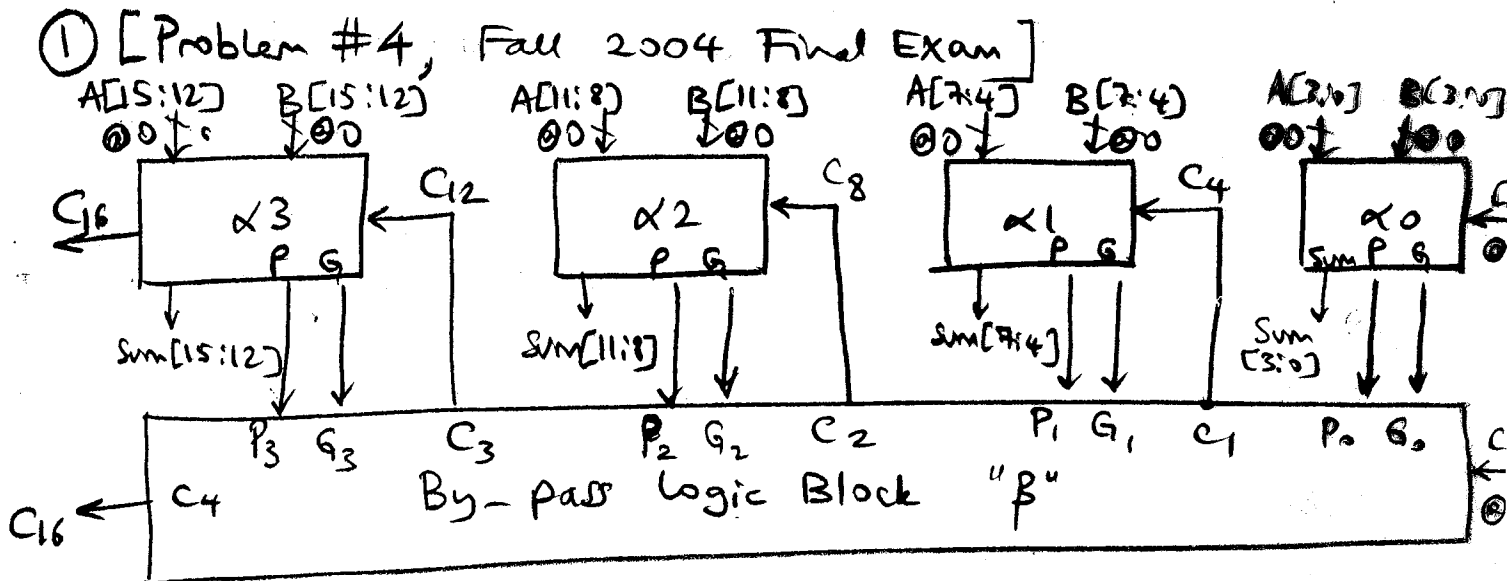 ① [Problem #4, Fall 2004 Final Exam]
A[15:12] B[15:12] A[11:8] B[11:8] A[7:4] B[7:4] A[3:0] B[3:0]
@0 @0 @0 @0 @0 @0 @0 @0
C16 α3 C12 α2 C8 α1 C4 α0 C
P G P G P G Sum P G @
Sum[15:12] Sum[11:8] Sum[7:4] Sum
[3:0]
P3 G3 C3 P2 G2 C2 P1 G1 C1 P0 G0 C
C16 C4 By-pass Logic Block "β" @